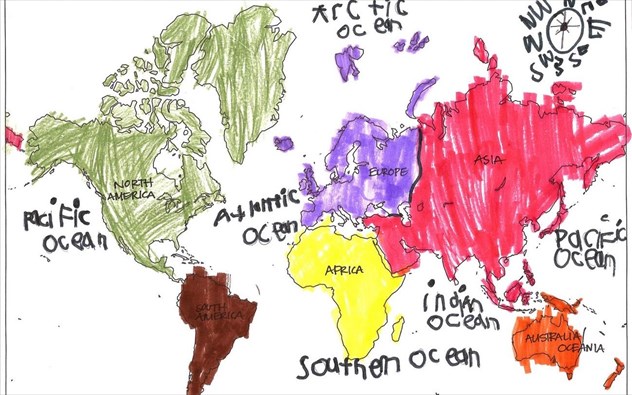 Arctic
Ocean
NW
N
NE
E
W
SW
S
SE
EUROPE
ASIA
NORTH
AMERICA
Pacific
Ocean
Atlntic
Ocean
Pacific
Ocean
AFRICA
SOUTH
AMERICA
indian
Ocean
AUSTRALIA/
OCEANIA
Southern Ocean